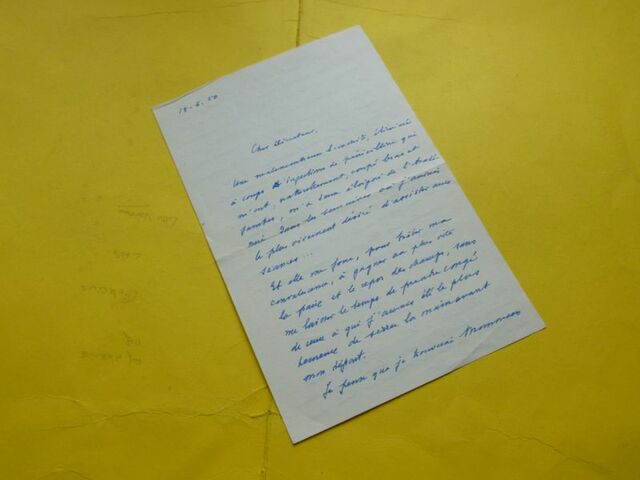 18.6.50
Cher Directeur,
Une malencontreuse sinusite, éliminée
à coups d'injections de pénicilline qui
m'ont, naturellement, coupé bras et
jambes, m'a tenu éloigné de l'Acadé-
mie dans les semaines où j'aurais
le plus vivement désiré d'assister aux
séances...
Et elle me force, pour hâter ma
convalescence, à gagner au plus vite
la paix et le repos des champs, sans
me laisser le temps de prendre congé
de ceux à qui j'aurais été le plus
heureux de serrer la main avant
mon départ.
Je pense que je trouverai